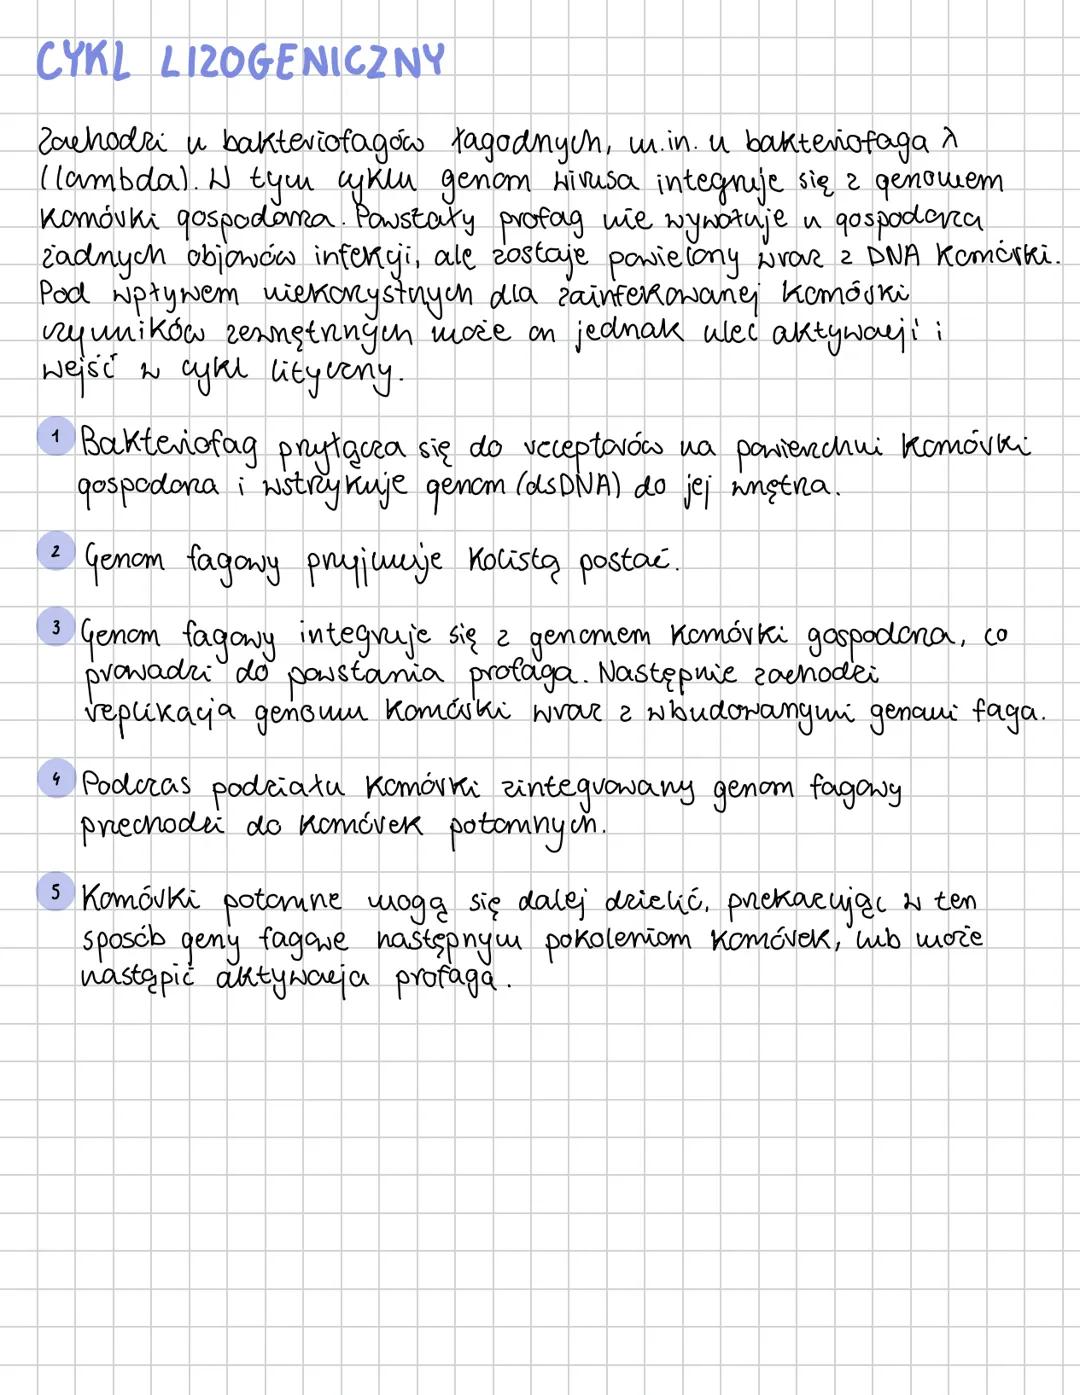 CYKL LIZOGENICZNY
Zachodzi u bakteriofagów łagodnych, m.in. u bakteriofaga λ
(lambda). W tym cyklu genom wirusa integruje się z genomem
komórki gospodarza. Powstały profag nie wywołuje u gospodarza
żadnych objawów infekcji, ale zostaje powielony wraz z DNA komórki.
Pod wpływem niekorzystnych dla zainfekowanej komórki
czynników zewnętrznych może on jednak ulec aktywacji i
wejść w cykl lityczny.
1 Bakteriofag przyłącza się do receptorów na powierzchni komórki
gospodarza i wstrzykuje genom (dsDNA) do jej wnętrza.
2 Genom fagowy przyjmuje kolistą postać.
3 Genom fagowy integruje się z genomem komórki gospodarza, co
prowadzi do powstania profaga. Następnie zachodzi
replikacja genomu komórki wraz z wbudowanymi genami faga.
4 Podczas podziału komórki zintegrowany genom fagowy
przechodzi do komórek potomnych.
5 Komórki potomne mogą się dalej dzielić, przekazując w ten
sposób geny fagowe następnym pokoleniom komórek, lub może
nastąpić aktywacja profaga.